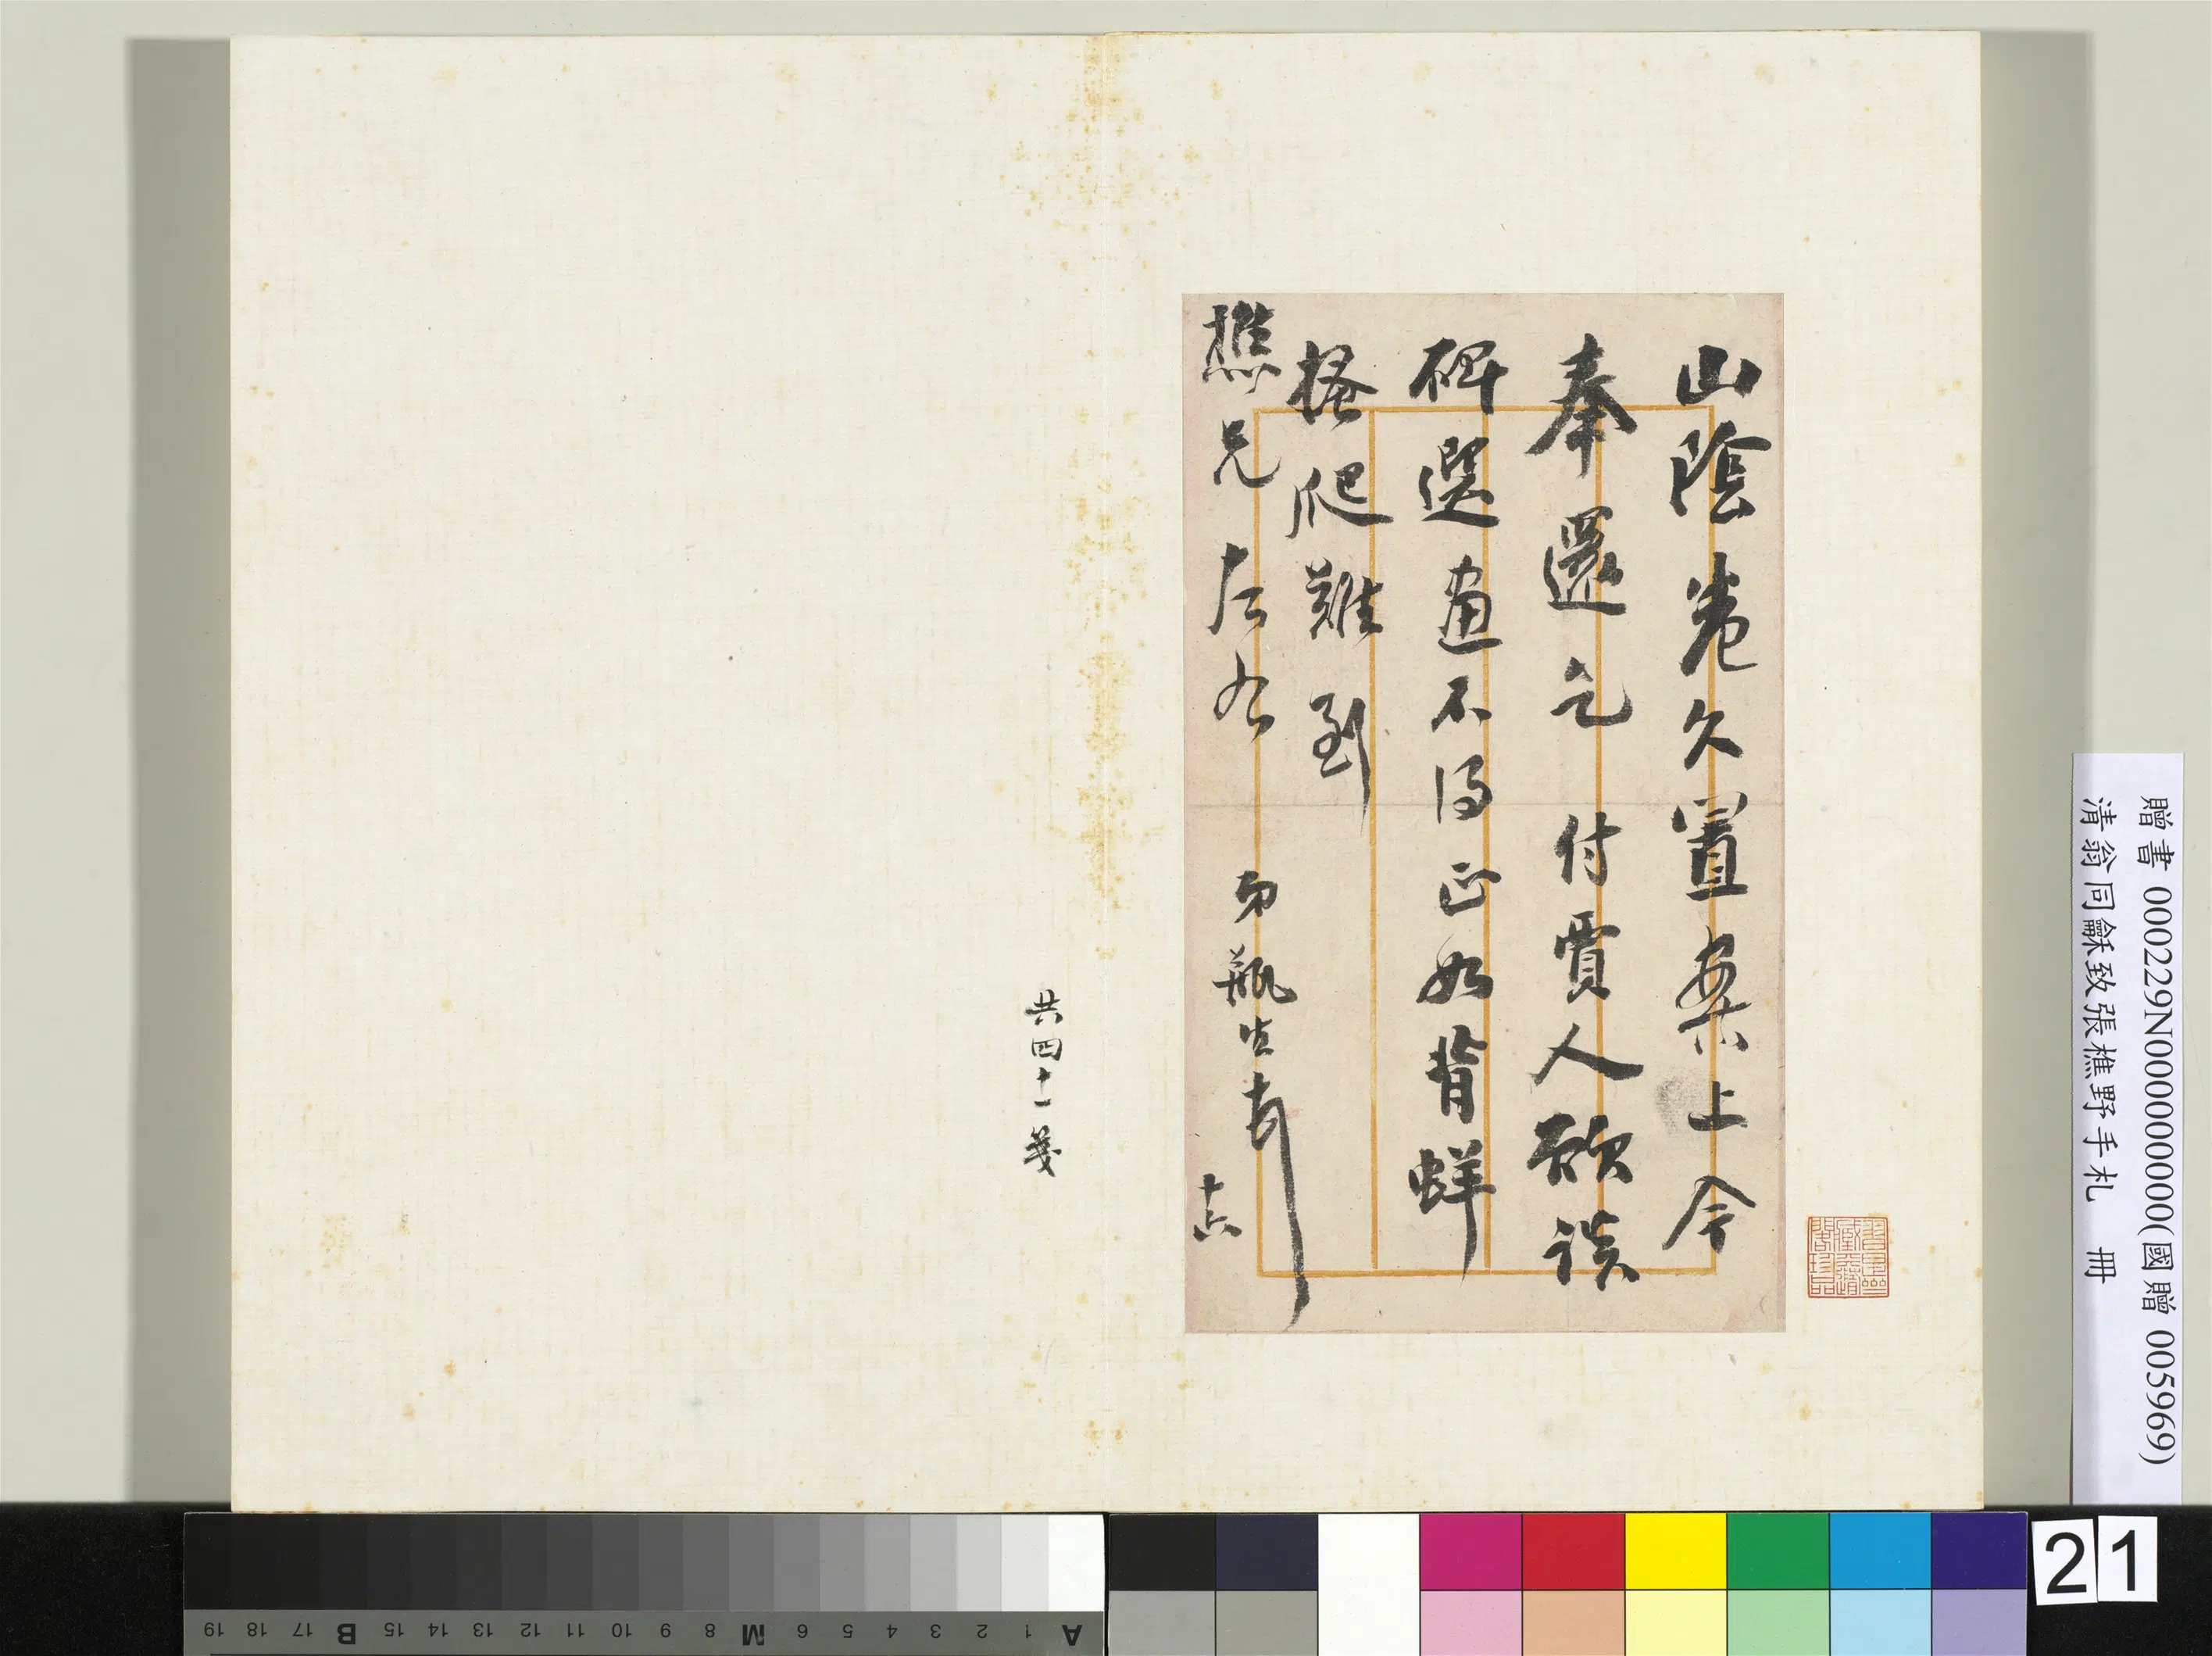 贈書 000229N000000000(國贈 005969)
清翁同龢致張樵野手札 冊
山陰卷久置案上今
奉還乞 付賈人欲談
碑選畫不得正如背蛘
搔爬難到
樵兄左右 弟瓶生 十六
共四十一箋
A 1 2 3 4 5 6 M 8 9 10 11 12 13 14 15 B 17 18 19
21